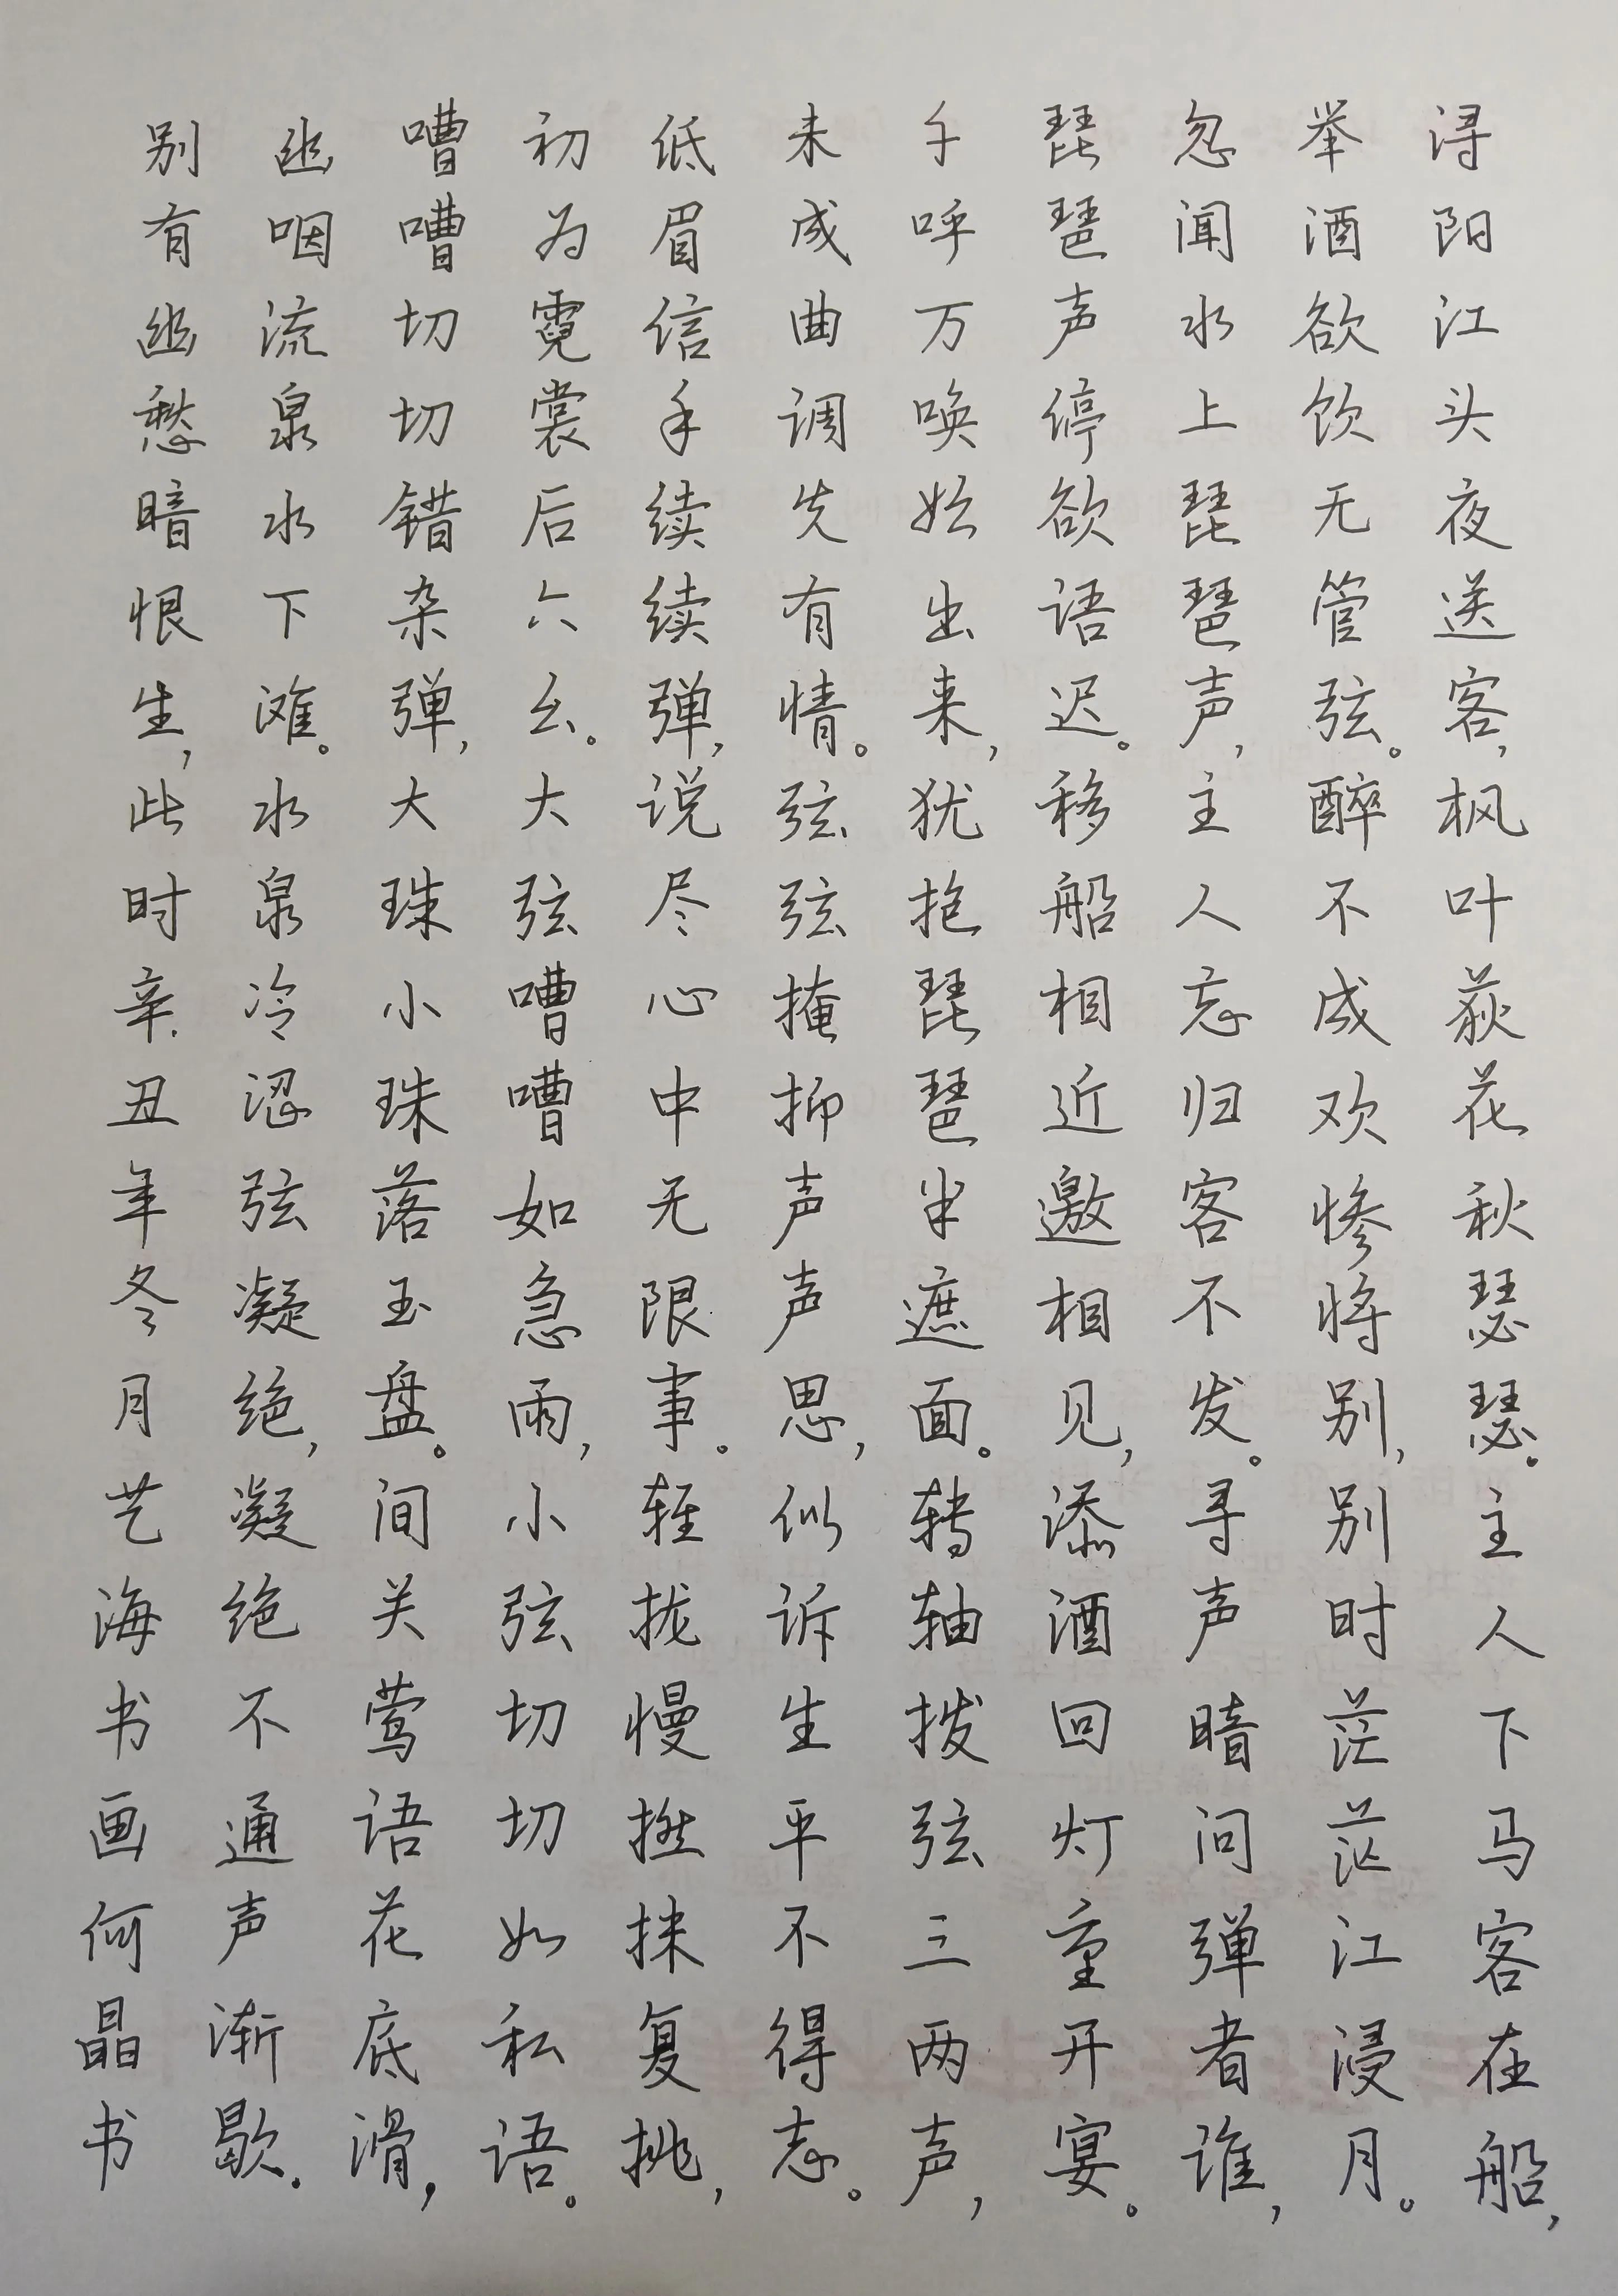 浔阳江头夜送客,枫叶荻花秋瑟瑟。主人下马客在船,
举酒欲饮无管弦。醉不成欢惨将别,别时茫茫江浸月。
忽闻水上琵琶声,主人忘归客不发。寻声暗问弹者谁,
琵琶声停欲语迟。移船相近邀相见,添酒回灯重开宴。
千呼万唤始出来,犹抱琵琶半遮面。转轴拨弦三两声,
未成曲调先有情。弦弦掩抑声声思,似诉生平不得志。
低眉信手续续弹,说尽心中无限事。轻拢慢捻抹复挑,
初为霓裳后六幺。大弦嘈嘈如急雨,小弦切切如私语。
嘈嘈切切错杂弹,大珠小珠落玉盘。间关莺语花底滑,
幽咽流泉水下滩。水泉冷涩弦凝绝,凝绝不通声渐歇.
别有幽愁暗恨生,此时辛丑年冬月艺海书画何晶书